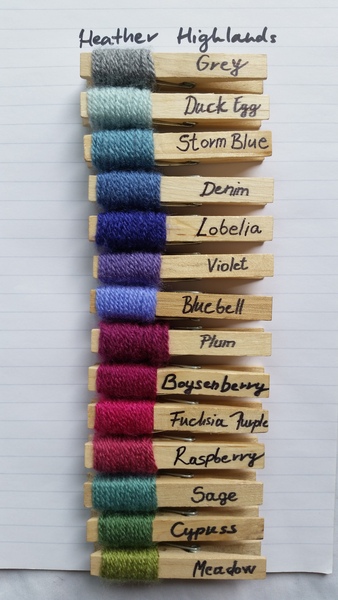 Heather Highlands
Grey
Duck Egg
Storm Blue
Denim
Lobelia
Violet
Bluebell
Plum
Boysenberry
Fuchsia Purple
Raspberry
Sage
Cypress
Meadow